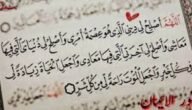 اللَّهُمَّ أَصْلِحْ لِي دِينِي الَّذِي هُوَ عِصْمَةُ أَمْرِي وَأَصْلِحْ لِي دُنْيَايَ الَّتِي فِيهَا
مَعَاشِي وَأَصْلِحْ لِي آخِرَتِي الَّتِي فِيهَا مَعَادِي وَاجْعَلِ الْحَيَاةَ زِيَادَةً لِي
فِي كُلِّ خَيْرٍ وَاجْعَلِ الْمَوْتَ رَاحَةً لِي مِنْ كُلِّ شَرٍّ